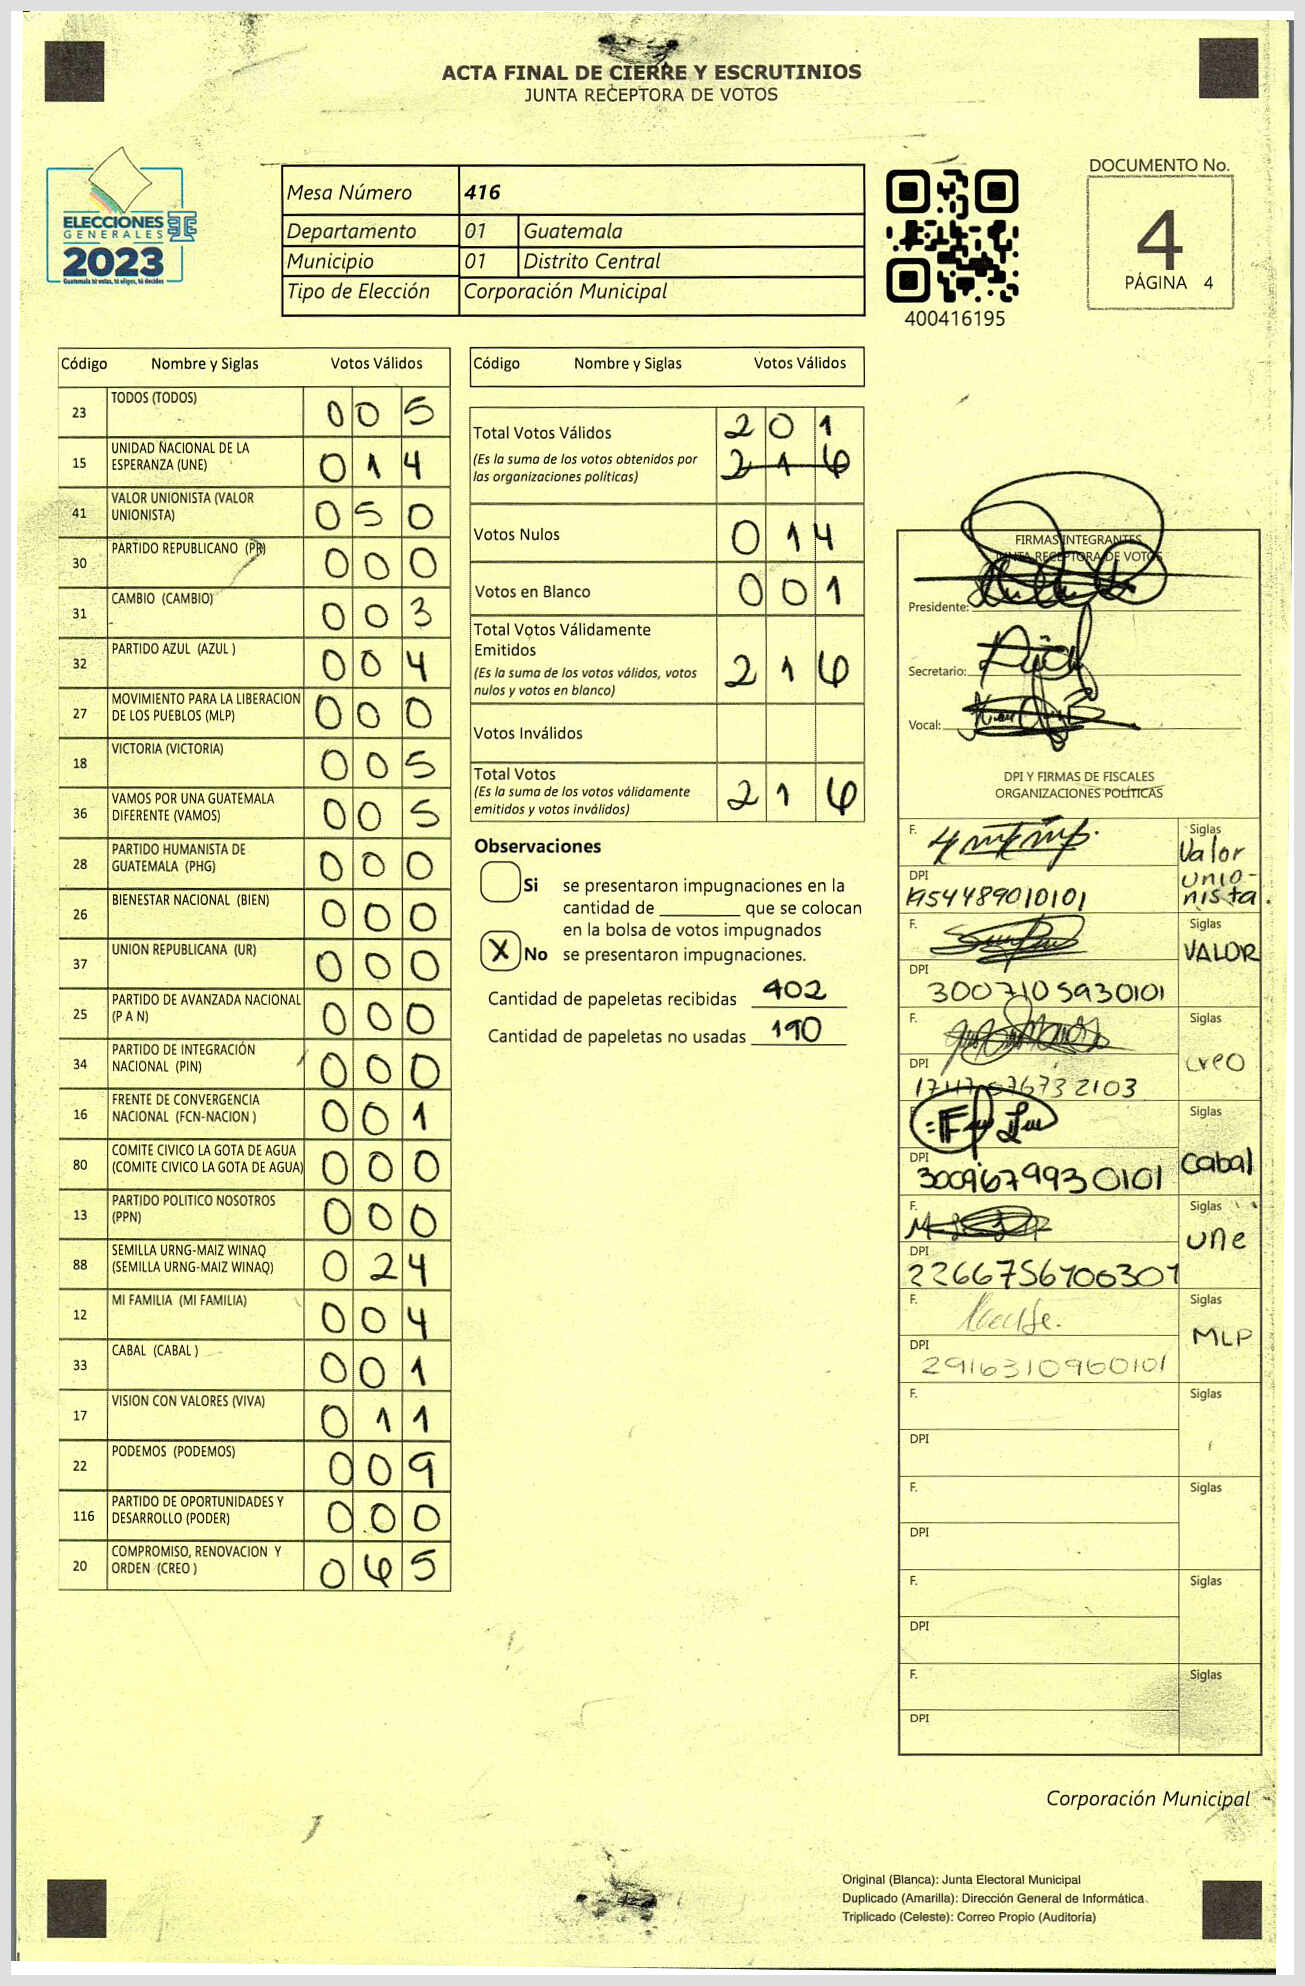 ACTA FINAL DE CIERRE Y ESCRUTINIOS
JUNTA RECEPTORA DE VOTOS
ELECCIONES
GENERALES
2023
Guatemala tú votas, tú eliges, tú decides
Mesa Número 416
Departamento 01 Guatemala
Municipio 01 Distrito Central
Tipo de Elección Corporación Municipal
400416195
DOCUMENTO No.
4
PÁGINA 4
Código Nombre y Siglas Votos Válidos
23 TODOS (TODOS) 0 0 5
15 UNIDAD NACIONAL DE LA ESPERANZA (UNE) 0 1 4
41 VALOR UNIONISTA (VALOR UNIONISTA) 0 5 0
30 PARTIDO REPUBLICANO (PR) 0 0 0
31 CAMBIO (CAMBIO) 0 0 3
32 PARTIDO AZUL (AZUL ) 0 0 4
27 MOVIMIENTO PARA LA LIBERACION DE LOS PUEBLOS (MLP) 0 0 0
18 VICTORIA (VICTORIA) 0 0 5
36 VAMOS POR UNA GUATEMALA DIFERENTE (VAMOS) 0 0 5
28 PARTIDO HUMANISTA DE GUATEMALA (PHG) 0 0 0
26 BIENESTAR NACIONAL (BIEN) 0 0 0
37 UNION REPUBLICANA (UR) 0 0 0
25 PARTIDO DE AVANZADA NACIONAL (P A N) 0 0 0
34 PARTIDO DE INTEGRACIÓN NACIONAL (PIN) 0 0 0
16 FRENTE DE CONVERGENCIA NACIONAL (FCN-NACION ) 0 0 1
80 COMITE CIVICO LA GOTA DE AGUA (COMITE CIVICO LA GOTA DE AGUA) 0 0 0
13 PARTIDO POLITICO NOSOTROS (PPN) 0 0 0
88 SEMILLA URNG-MAIZ WINAQ (SEMILLA URNG-MAIZ WINAQ) 0 2 4
12 MI FAMILIA (MI FAMILIA) 0 0 4
33 CABAL (CABAL ) 0 0 1
17 VISION CON VALORES (VIVA) 0 1 1
22 PODEMOS (PODEMOS) 0 0 9
116 PARTIDO DE OPORTUNIDADES Y DESARROLLO (PODER) 0 0 0
20 COMPROMISO, RENOVACION Y ORDEN (CREO ) 0 6 5
Código Nombre y Siglas Votos Válidos
Total Votos Válidos 2 0 1
(Es la suma de los votos obtenidos por las organizaciones políticas) 2 1 6
Votos Nulos 0 1 4
Votos en Blanco 0 0 1
Total Votos Válidamente Emitidos
(Es la suma de los votos válidos, votos nulos y votos en blanco) 2 1 6
Votos Inválidos
Total Votos
(Es la suma de los votos válidamente emitidos y votos inválidos) 2 1 6
Observaciones
Si se presentaron impugnaciones en la
cantidad de ________ que se colocan
en la bolsa de votos impugnados
X No se presentaron impugnaciones.
Cantidad de papeletas recibidas 402
Cantidad de papeletas no usadas 190
FIRMAS INTEGRANTES
JUNTA RECEPTORA DE VOTOS
Presidente:
Secretario:
Vocal:
DPI Y FIRMAS DE FISCALES
ORGANIZACIONES POLÍTICAS
F. Siglas Valor unio-nista.
DPI 1954489010101
F. Siglas VALOR
DPI 3007105930101
F. Siglas creo
DPI
F. Siglas Cabal
DPI 3009679930101
F. Siglas une
DPI 2266756700301
F. Siglas MLP
DPI 2916310960101
F. Siglas
DPI
F. Siglas
DPI
F. Siglas
DPI
F. Siglas
DPI
Corporación Municipal
Original (Blanca): Junta Electoral Municipal
Duplicado (Amarilla): Dirección General de Informática
Triplicado (Celeste): Correo Propio (Auditoría)